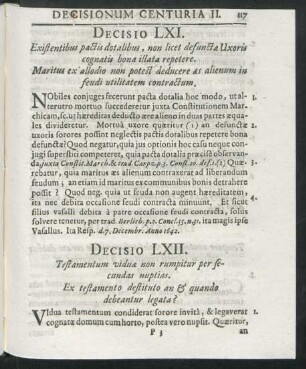 DECISIONUM CENTURIA II. 117
DECISIO LXI.
Existentibus pactis dotalibus, non licet defunctæ Uxoris
cognatis bona illata repetere.
Maritus ex allodio non potest deducere æs alienum in
feudi utilitatem contractum.
NObiles conjuges fecerunt pacta dotalia hoc modo, ut al- 1.
terutro mortuo succederetur juxta Constitutionem Mar-
chicam, sc. ut hæreditas deducto ære alieno in duas partes æqua-
les divideretur. Mortuâ uxore quæritur (1) an defunctæ 2.
uxoris sorores possint neglectis pactis dotalibus repetere bona
defunctæ? Quod negatur, quia jus optionis hoc casu neque con-
jugi superstiti competeret, quia pacta dotalia præcisè observan-
da, juxta Constit. March. & trad. Carpz. p. 3. Const. 20. def. 1. (2) Quæ- 3.
rebatur, quia maritus æs alienum contraxerat ad librandum
feudum; an etiam id maritus ex communibus bonis detrahere
possit? Quod neg. quia ut feuda non augent hæreditatem,
ita nec debita occasione feudi contracta minuunt, Et sicut 4.
filius vasalli debita à patre occasione feudi contracta, solus
solvere tenetur, per trad. Berlich. p. 2. Concl. 55. n. 41. ita magis ipse
Vasallus. Ita Resp. d. 7. Decembr. Anno 1642.
DECISIO LXII.
Testamentum viduæ non rumpitur per se-
cundas nuptias.
Ex testamento destituto an & quando
debeantur legata?
VIdua testamentum condiderat sorore invitâ, & legaverat 1.
cognatæ domum cum horto, postea vero nupsit. Quæritur,
P 3 an